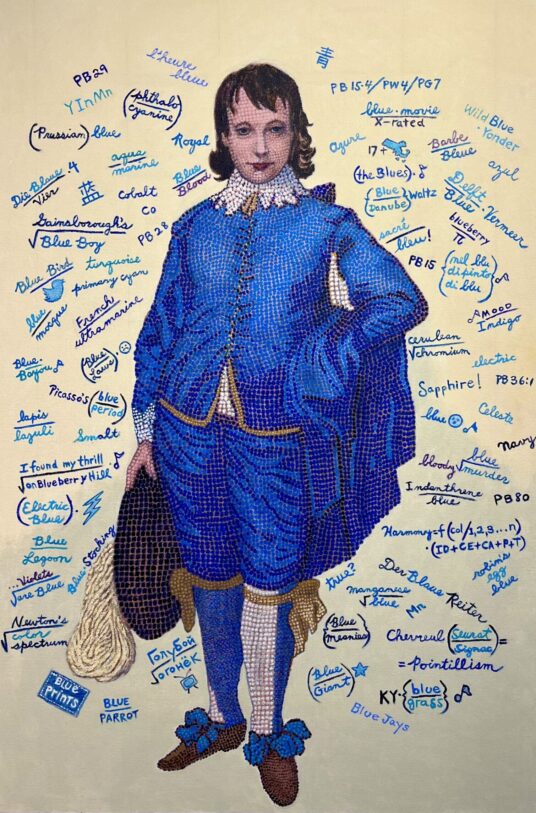 l'heure
bleue
PB29
YInMn
(phthalo
cyanine)
(Prussian) blue
Royal
aqua
marine
Die Blaue 4
Vier
Blue
Blood
蓝
cobalt
Co
Gainsborough's
√Blue Boy
PB28
Blue Bird
turquoise
primary cyan
blue
mosque
French
ultramarine
Blue
Bayou
(Blue
Laws)
Picasso's (blue
period)
lapis
lazuli
Smalt
I found my thrill
√on Blueberry Hill
(Electric
Blue)
Blue
Lagoon
Blue Stocking
...Violets
√are Blue
Newton's
√color
spectrum
Голубой
√огонёк
BLUE
PRINTS
BLUE
PARROT
青
PB 15:4/PW4/PG7
blue·movie
X-rated
Wild Blue
Yonder
azure
17+
Barbe
Bleue
azul
(the Blues)
Delft
Blue·Vermeer
(Blue
Danube) Waltz
sacré
bleu!
blueberry
π
PB15
{nel blu
dipinto
di blu}
MOOD
Indigo
cerulean
√chromium
electric
Sapphire!
PB 36:1
blue
Celeste
navy
bloody
blue
√murder
Indanthrene
blue
PB80
Harmony=f (col/1,2,3...n)
·(ID+CE+CA+P+T)
robin's
egg
blue
true?
manganese
√blue
Mn
Der Blaue Reiter
(Blue
meanies)
Chevreul (Seurat
Signac) =
= Pointillism
(Blue
Giant)
KY·{blue
grass}
Blue Jays